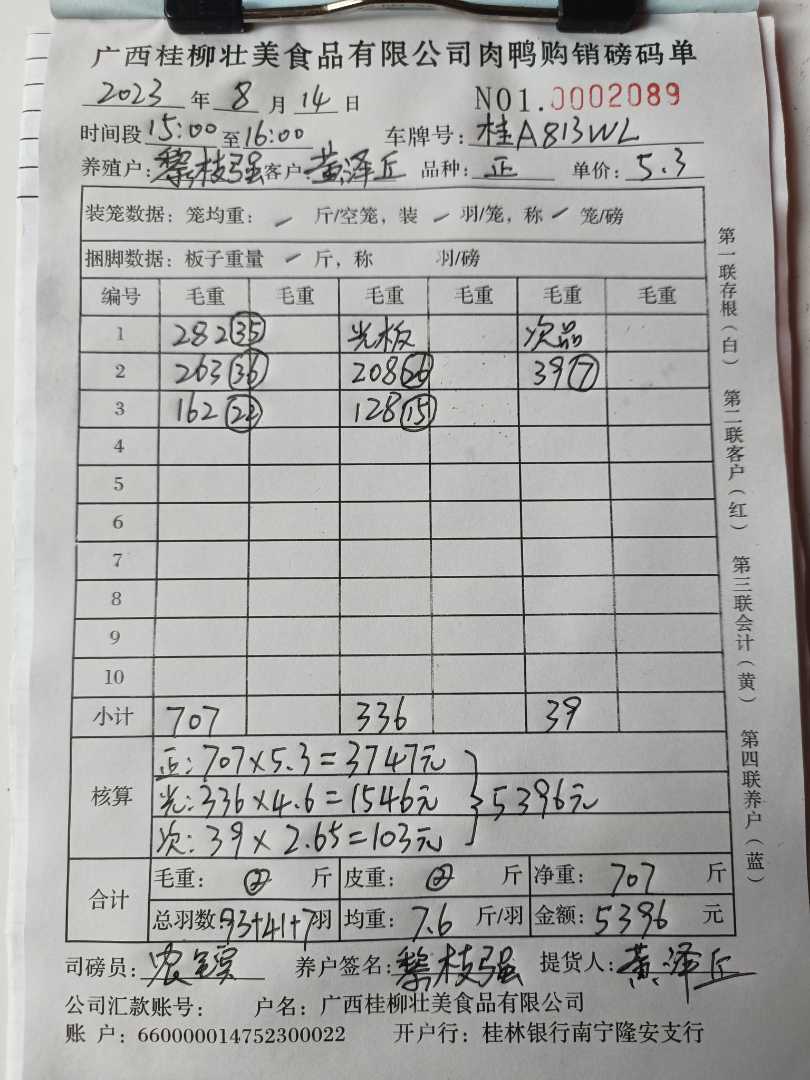 广西桂柳壮美食品有限公司肉鸭购销磅码单
2023 年 8 月 14 日 NO1.0002089
时间段 15:00 至 16:00 车牌号: 桂A813WL
养殖户: 黎枝强 客户: 黄泽丘 品种: 正 单价: 5.3
装笼数据: 笼均重: 斤/空笼, 装 羽/笼, 称 笼/磅
捆脚数据: 板子重量 斤, 称 羽/磅
编号 毛重 毛重 毛重 毛重 毛重 毛重
1 282 35 光板 次品
2 263 36 208 26 39 7
3 162 22 128 15
4
5
6
7
8
9
10
小计 707 336 39
核算
正: 707×5.3=3747元
光: 336×4.6=1546元 5396元
次: 39×2.65=103元
合计
毛重: 斤 皮重: 斤 净重: 707 斤
总羽数: 93+41+7 羽 均重: 7.6 斤/羽 金额: 5396 元
司磅员: 养户签名: 黎枝强 提货人: 黄泽丘
公司汇款账号: 户名: 广西桂柳壮美食品有限公司
账 户: 660000014752300022 开户行: 桂林银行南宁隆安支行
第一联存根(白) 第二联客户(红) 第三联会计(黄) 第四联养户(蓝)